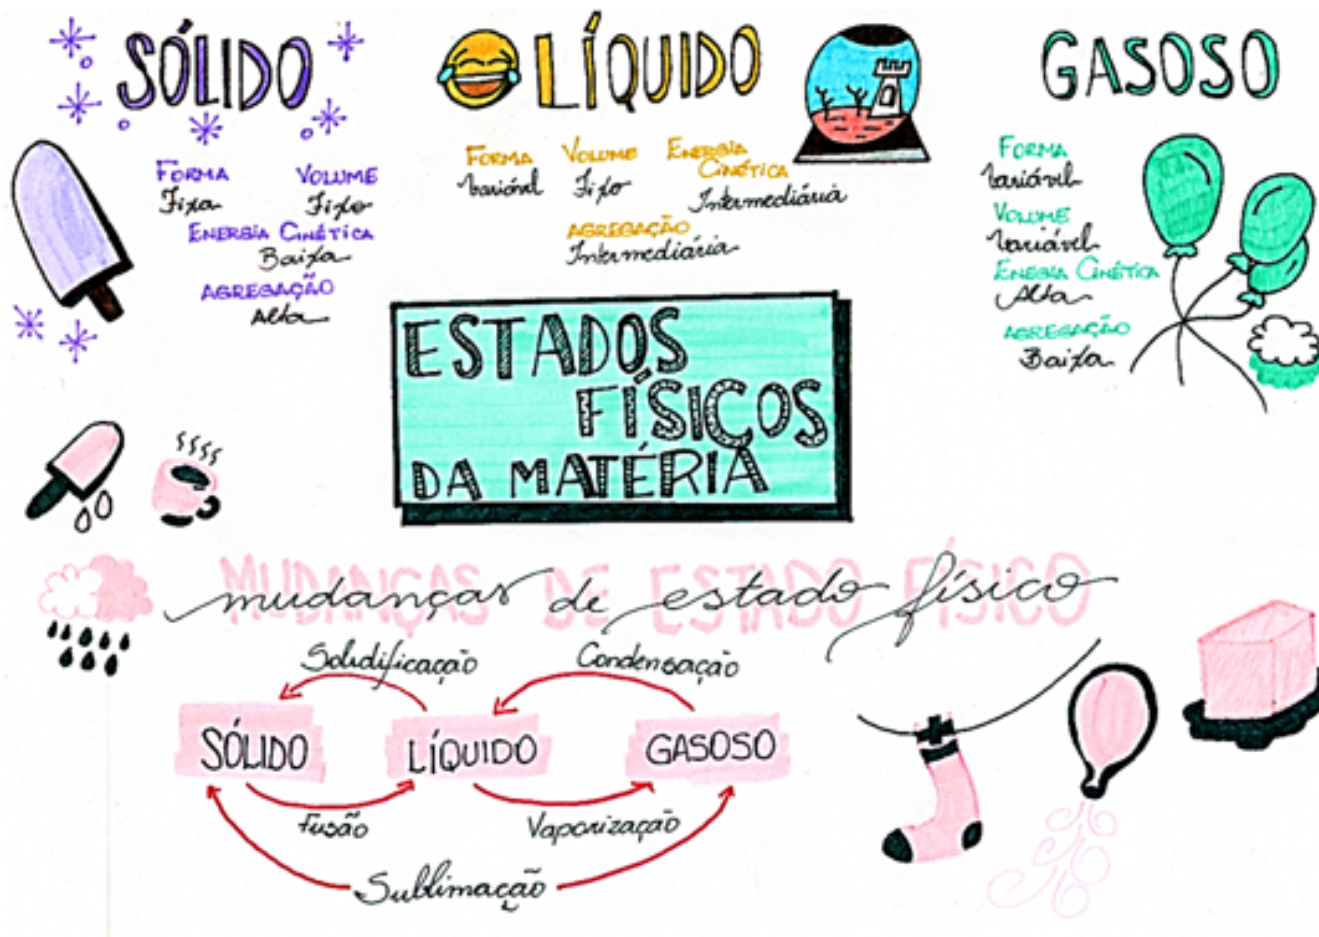 SÓLIDO
FORMA
Fixa
VOLUME
Fixo
ENERGIA CINÉTICA
Baixa
AGREGAÇÃO
Alta
LÍQUIDO
FORMA
Variável
VOLUME
Fixo
ENERGIA
CINÉTICA
Intermediária
AGREGAÇÃO
Intermediária
GASOSO
FORMA
Variável
VOLUME
Variável
ENEGIA CINÉTICA
Alta
AGREGAÇÃO
Baixa
ESTADOS
FÍSICOS
DA MATÉRIA
MUDANÇAS DE ESTADO FÍSICO
mudanças de estado físico
Solidificação
Condensação
SÓLIDO
LÍQUIDO
GASOSO
Fusão
Vaporização
Sublimação